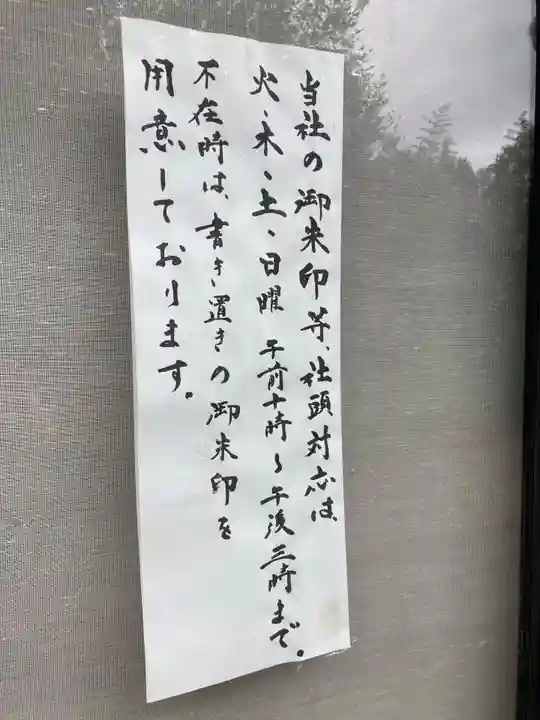 当社の御朱印等、社頭対応は
火、木、土、日曜 午前十時〜午後三時まで。
不在時は、書き置きの御朱印を
用意しております。